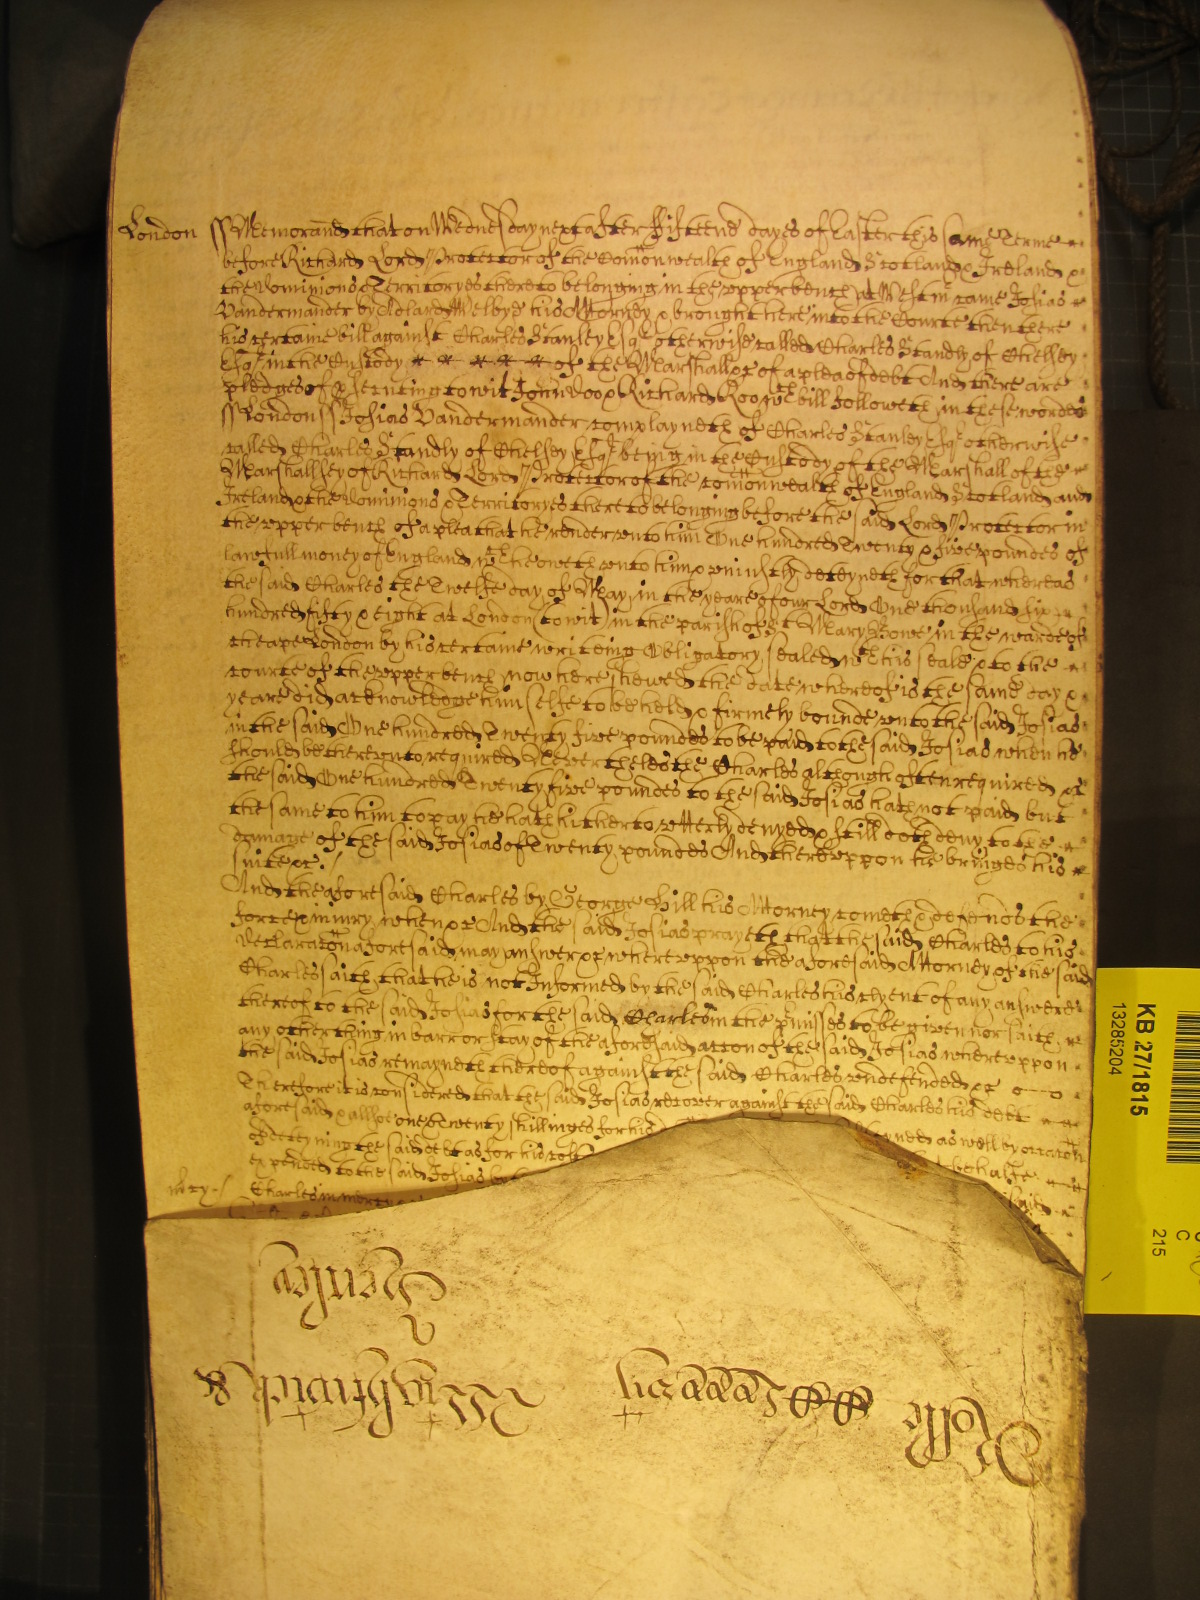 London ss Memorand that on Wednesday next after fifteene dayes of Easter this same Terme
before Richard Lord Protector of the Comonwealth of England Scotland & Ireland &
the Dominions & Territoryes thereto belonging in the upper bench at Westm came Josias
Vandermander by Adlard Welby his Attorney & brought here into the Courte then there
his certaine bill against Charles Stanley Esqr otherwise called Charles Standly of Chelsey
Esqr in the Custody of the Marshall &c of a plea of debt And there are
pledges of prosecuting to wit John Doo & Richard Roo wch bill followeth in these wordes
ss London ss Josias Vandermander complayneth of Charles Stanley Esqr otherwise
called Charles Standly of Chelsey Esqr being in the Custody of the Marshall of the
Marshallsey of Richard Lord Protector of the comonwealth of England Scotland and
Ireland & the Dominions & Territoryes thereto belonging before the said Lord Protector in
the upper bench of a plea that he render unto him One hundred Twenty & five poundes of
lawfull money of England wch he oweth unto him & uniustly deteyneth for that whereas
the said Charles the Twelfe day of May in the yeare of our Lord One thousand six
hundred fifty & eight at London (to wit) in the parish of St Mary Bowe in the warde of
Cheape London by his certaine writeing Obligatory sealed wth his seale & to the
Courte of the upper bench now here shewed the date whereof is the same day &
yeare did acknowledge himselfe to be held & firmely bounde unto the said Josias
in the said One hundred Twenty five poundes to be paid to the said Josias when he
should be thereunto required Neverthelesse the Charles although often required &c
the said One hundred Twenty five poundes to the said Josias hath not paid but
the same to him to pay he hath hitherto utterly denyed & still doth deny to the
damage of the said Josias of Twenty poundes And thereuppon he bringes his
suite &c /
And the aforesaid Charles by George Hill his Attorney cometh & defends the
force & iniury when &c And the said Josias prayeth that the said Charles to his
declaracon aforesaid may answer &c whereuppon the aforesaid Attorney of the said
Charles saith that he is not Informed by the said Charles his clyent of any answere
thereof to the said Josias for the said Charles in the pmisses to be given nor saith
any other thing in barr or stay of the aforesaid accon of the said Josias whereuppon
the said Josias remayneth thereof against the said Charles undefended &c
Therefore it is considered that the said Josias recover against the said Charles his debt
aforesaid & allsoe one & Twenty shillinges for his deteyned as well by occacon
of deteyning the said debt as for his costs behalfe
expended to the said Josias by said
mcy / Charles in mercy
Wightwick
Henley
Rolle
KB 27/1815
13285204
215
C